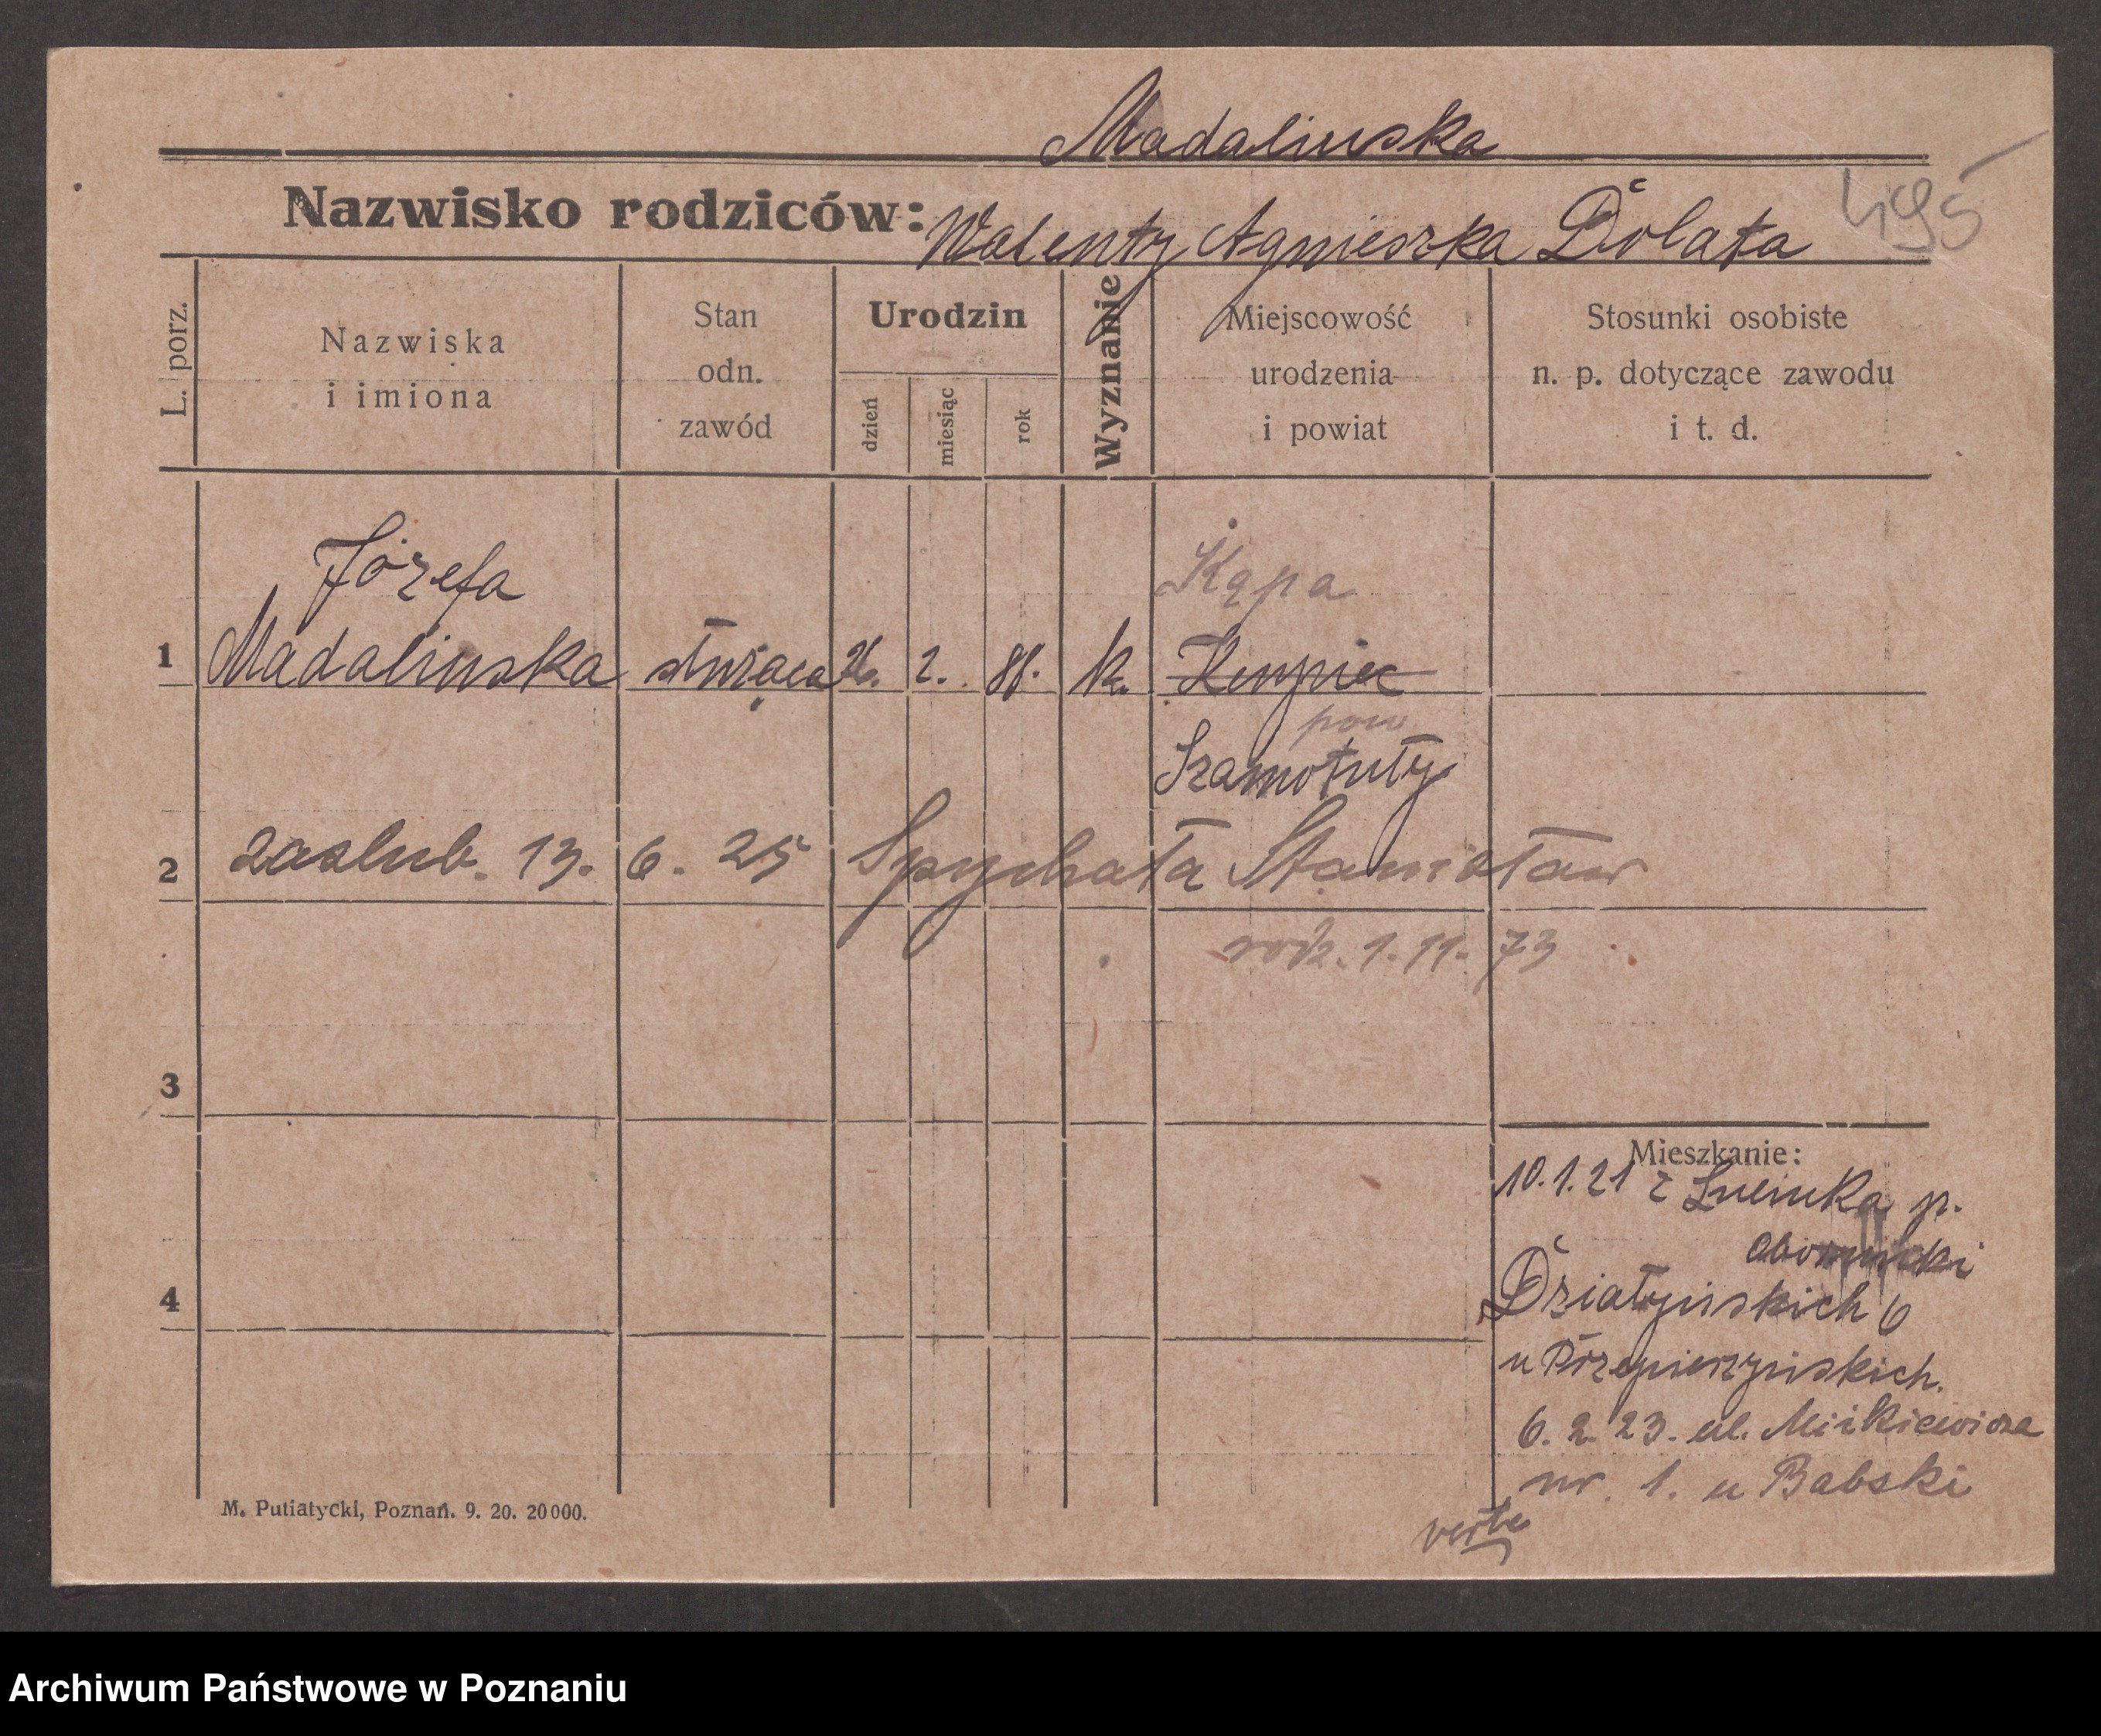 Madalinska
Nazwisko rodziców: Walenty Agnieszka Dolata
495
L. porz.
Nazwiska
i imiona
Stan
odn.
zawód
Urodzin
dzień
miesiąc
rok
Wyznanie
Miejscowość
urodzenia
i powiat
Stosunki osobiste
n. p. dotyczące zawodu
i t. d.
Józefa
Kąpa
1 Madalinska służąca 26. 2. 88. k.
pow
Szamotuły
2 zaslub. 13. 6. 25 Spychała Stanisław
rodz. 1. 11. 73
3
Mieszkanie:
10.1.21 z p.
obornicki
4
Działyńskich 6
u
6. 2. 23. ul. Mickiewicza
nr. 1. u Babski
verte
M. Putiatycki, Poznań. 9. 20. 20000.
Archiwum Państwowe w Poznaniu